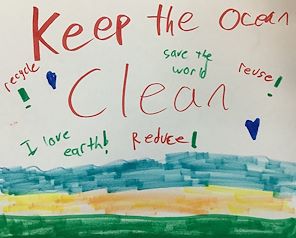 Keep the Ocean
save the
world
recycle!
reuse!
Clean
I love
earth!
Reduce!